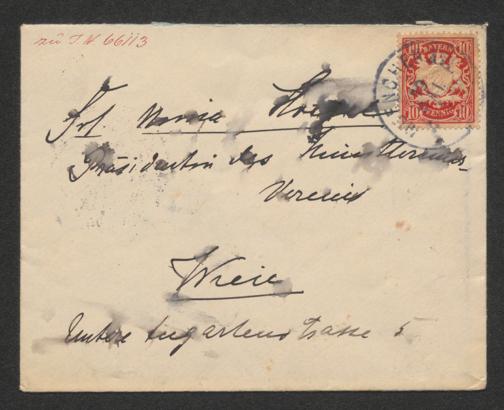 zu I.N. 66113
10 BAYERN 10
10 PFENNIG 10
Frl. Maria
Präsidentin des Künstlerinnen-
Vereins
Wien
Untere Augartenstrasse 5